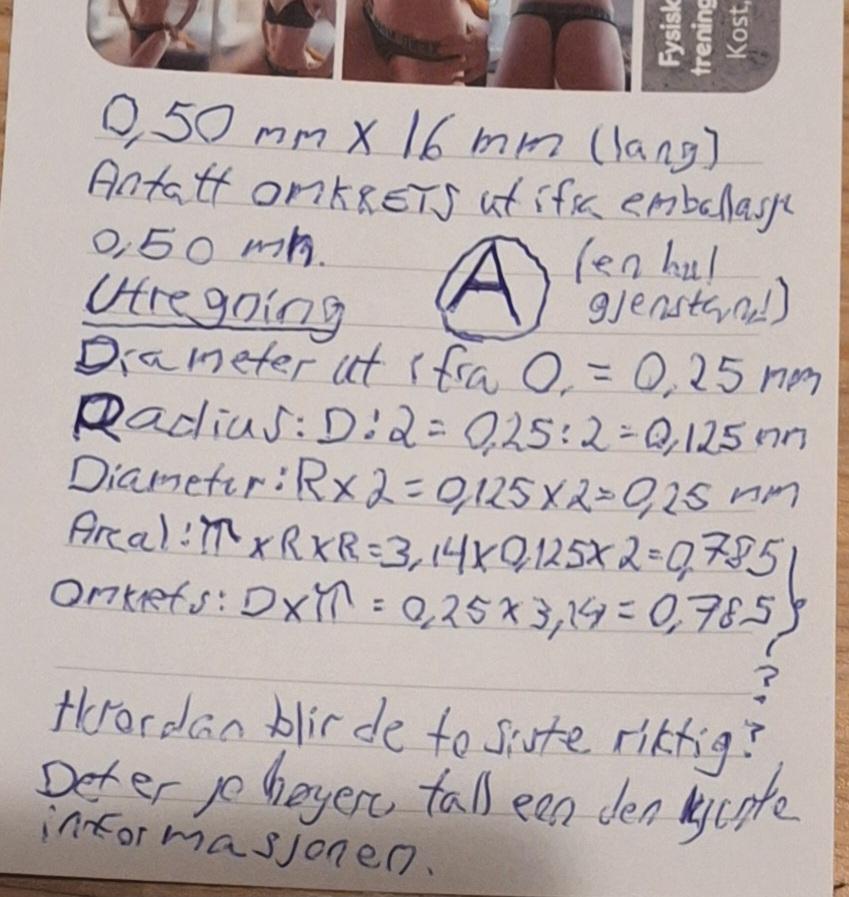 Fysisk
trening
Kost,
0,50 mm X 16 mm (lang)
Antatt OMKRETS ut ifra emballasje
0,50 mm.
A
(en hul
gjenstand)
Utregning
Diameter ut ifra O. = 0,25 mm
Radius: D:2 = 0,25:2 = 0,125 mm
Diameter: R x 2 = 0,125 x 2 = 0,25 mm
Areal: π x R x R = 3,14 x 0,125 x 2 = 0,785
Omkrets: D x π = 0,25 x 3,14 = 0,785
?
Hvordan blir de to siste riktig?
Det er jo høyere tall een den kjente
informasjonen.